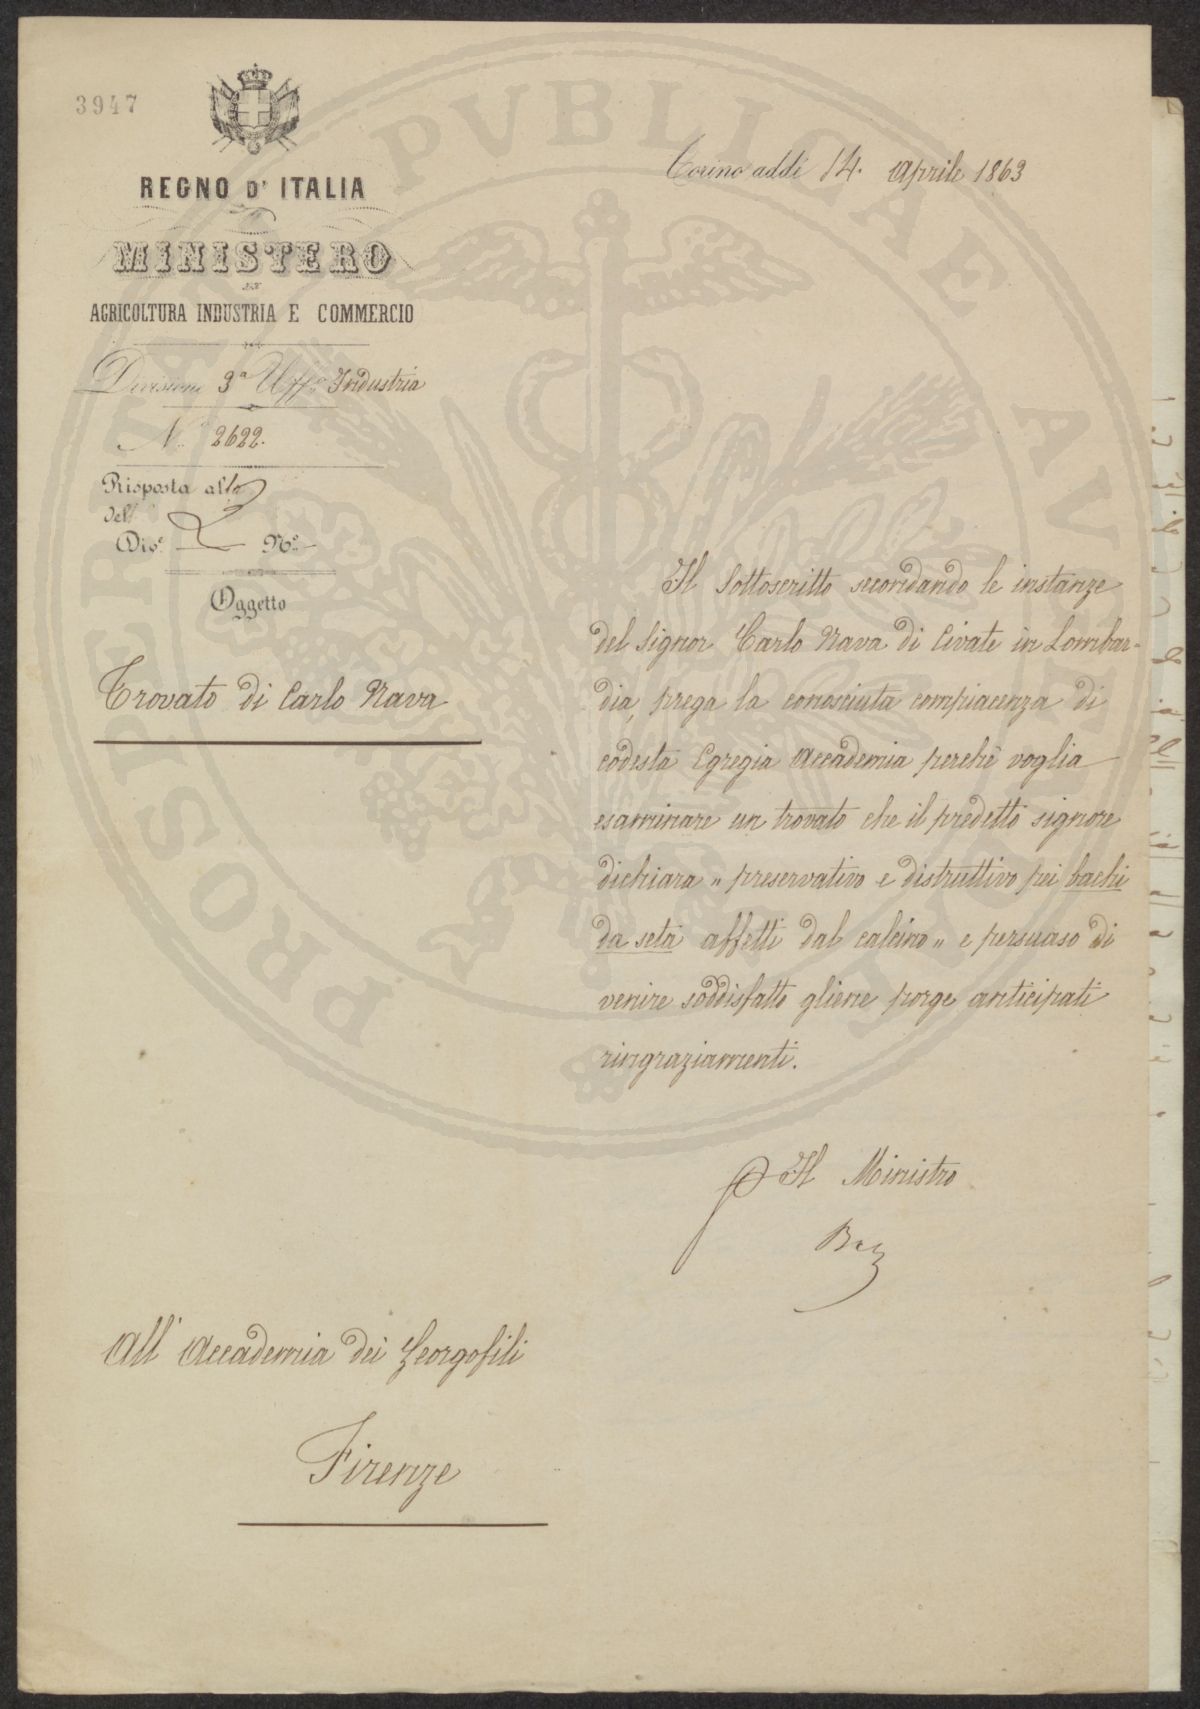 3947
REGNO D' ITALIA
MINISTERO
DI
AGRICOLTURA INDUSTRIA E COMMERCIO
Divisione 3ª Uffº Industria
N. 2622.
Risposta alla
del
Divᵉ. N°
Oggetto
Trovato di Carlo Nava
Torino addì 14. Aprile 1863
Il Sottoscritto secondando le instanze
del Signor Carlo Nava di Civate in Lombar-
dia, prega la conosciuta compiacenza di
codesta Egregia Accademia perchè voglia
esaminare un trovato che il predetto signore
dichiara „ preservativo e distruttivo pei bachi
da seta affetti dal calcino „ e persuaso di
venire soddisfatto gliene porge anticipati
ringraziamenti.
Il Ministro
All' Accademia dei Georgofili
Firenze
PROSPERITATI PVBLICAE AVGENDAE